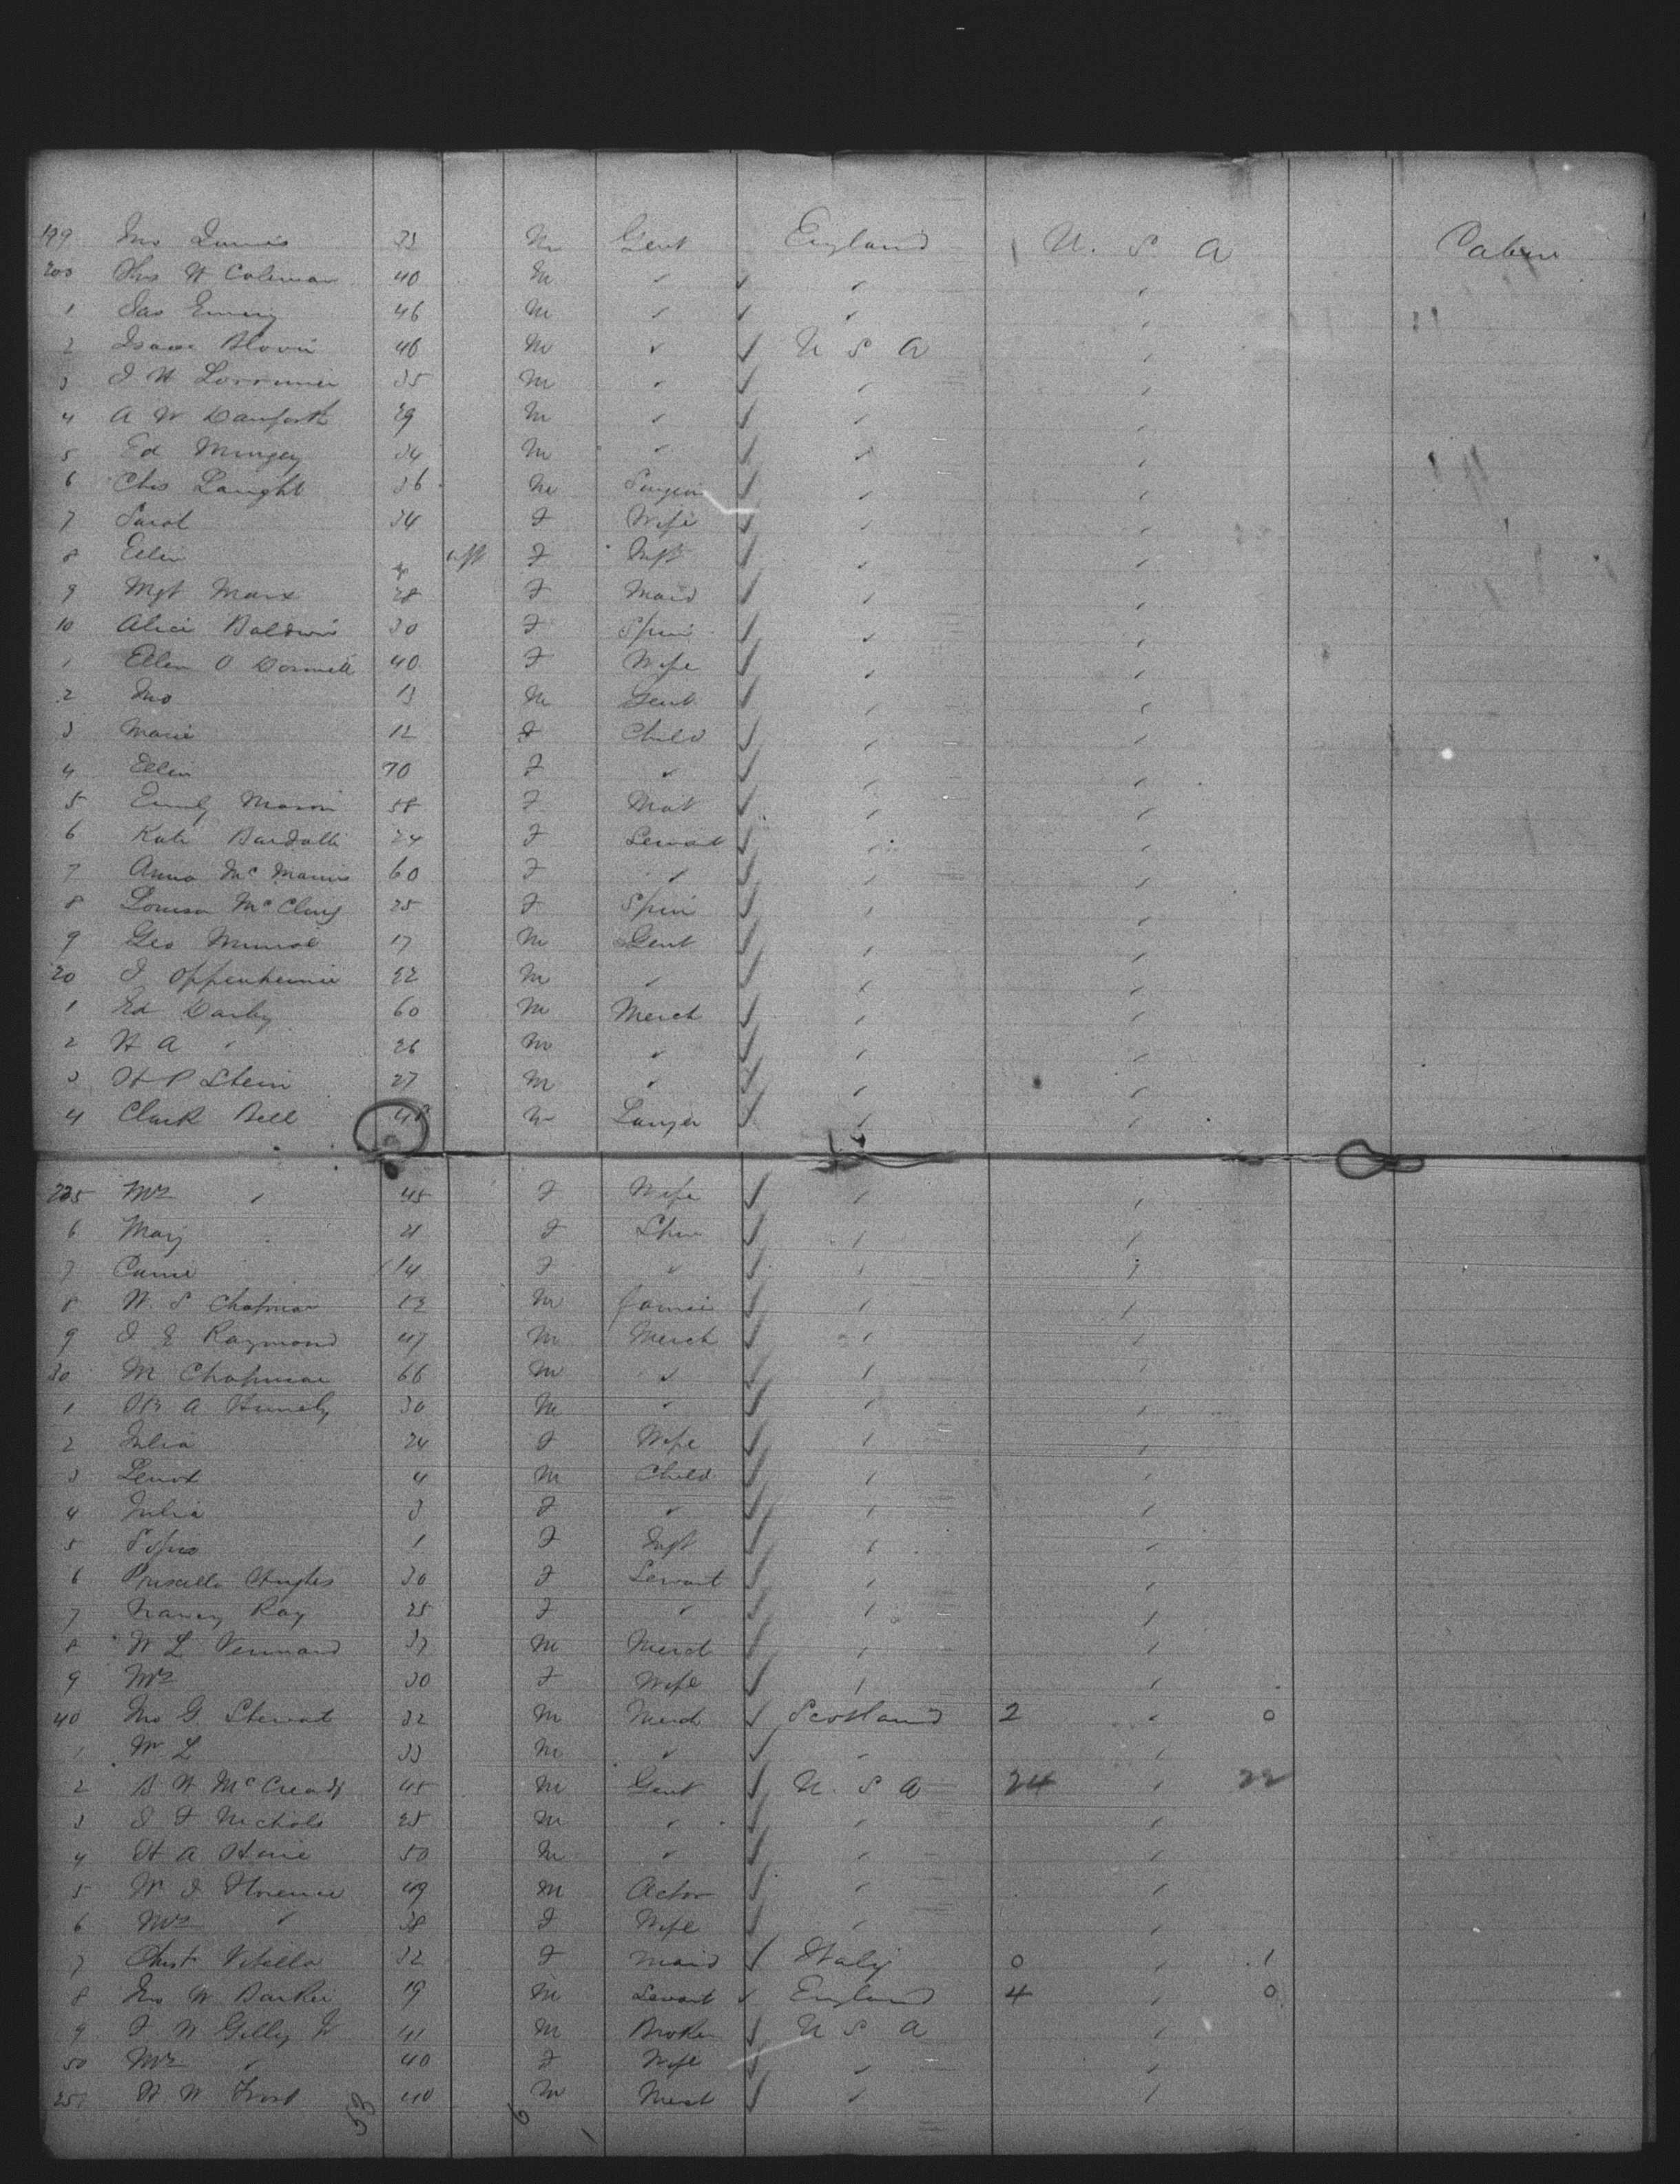 199 Jno 33 M Gent England U. S. A Cabin
200 Thos H Coleman 40 M ✓ ✓
1 Jas Emery 46 M ✓ ✓
2 Isaac 46 M ✓ ✓ U S A
3 J H Lorrimer 35 M ✓ ✓
4 A W Danforth 29 M ✓ ✓
5 Ed Mungey 34 M ✓ ✓
6 Chs Laught 36 M Surgeon ✓
7 Sarah 34 F Wife ✓
8 Ellen F Inft ✓
9 Mgt Marx 28 F Maid ✓
10 Alice Baldwin 30 F Spin ✓
1 Ellen O Donnell 40 F Wife ✓
2 Jno 13 M Gent ✓
3 Marie 12 F Child ✓
4 Ellen 70 F ✓ ✓
5 Emily Mason 58 F Mat ✓
6 Kate 24 F Servant ✓
7 Anna McManus 60 F ✓ ✓
8 Louisa McClury 25 F Spin ✓
9 Geo Munroe 17 M Gent ✓
20 J Oppenheimer 22 M ✓ ✓
1 Ed Darby 60 M Merch ✓
2 H A " 26 M ✓ ✓
3 H P Stein 27 M ✓ ✓
4 Clark Bell 48 M Lawyer ✓
225 Mrs " 45 F Wife ✓
6 Mary 21 F Spin ✓
7 Carrie 14 F ✓ ✓
8 W. S Chapman 53 M ✓
9 J E Raymond 47 M Merch ✓
30 M Chapman 66 M ✓ ✓
1 A 30 M ✓ ✓
2 Julia 24 F Wife ✓
3 Lenox 4 M Child ✓
4 Julia 3 F ✓ ✓
5 1 F Inft ✓
6 Priscilla Hughes 30 F Servant ✓
7 Nancy Ray 25 F ✓ ✓
8 W L Vennard 37 M Merch ✓
9 Mrs 30 F Wife ✓
40 Jno G. Stewart 32 M Merch ✓ Scotland 2 0
1 W L 33 M ✓ ✓
2 B H McCready 45 M Gent ✓ U. S A 24 22
3 J F Nichols 25 M ✓
4 H A Hine 50 M ✓ ✓
5 W J Florence 49 M Actor ✓
6 Mrs " 38 F Wife ✓
7 Christ Vitella 32 F Maid ✓ Italy 0 1
8 Jno W Barker 19 M Servant ✓ England 4 0
9 F W Gilley Jr 41 M Broker ✓ U S A
50 Mrs " 40 F Wife ✓
251 H W Frost 40 M Merch ✓
53 6 1